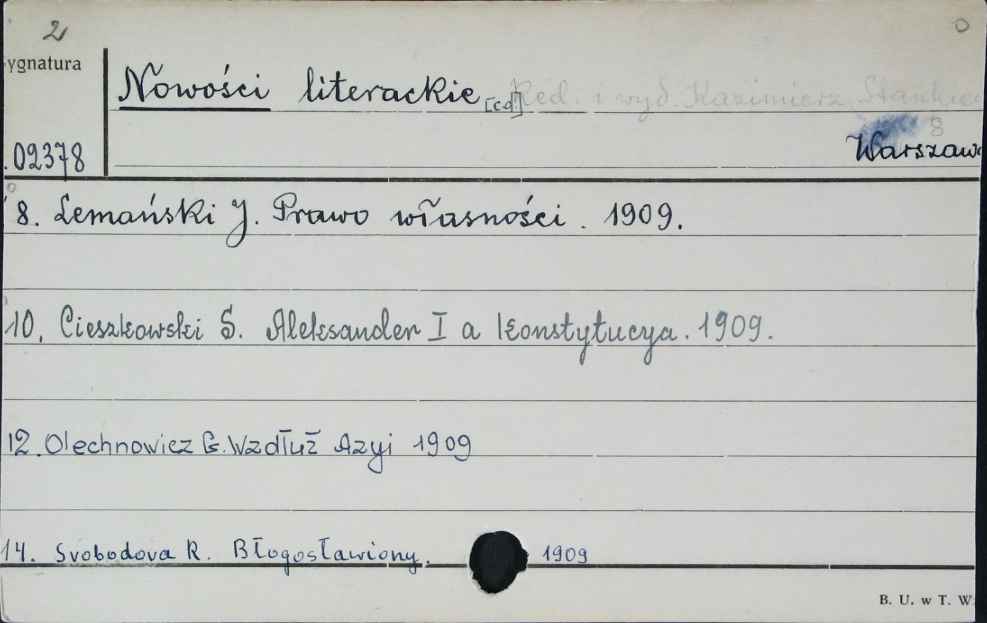 2 0
ygnatura
Nowości literackie [cd] Red. i wyd. Kazimierz
8
.02378 Warszawa
8. Lemański J. Prawo własności. 1909.
10. Cieszkowski S. Aleksander I a Konstytucya. 1909.
12. Olechnowicz G. Wzdłuż Azyi 1909
14. Svobodova R. Błogosławiony. 1909
B. U. w T. W.